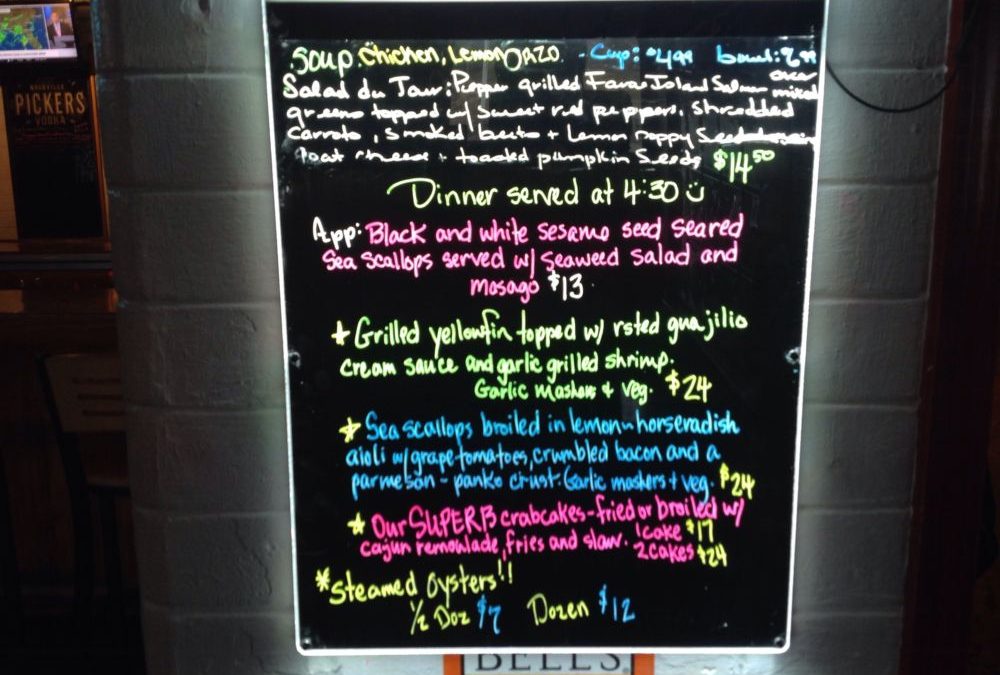 NASHVILLE
PICKERS
VODKA
Soup. Chicken, Lemon Orzo - Cup: $4.99 bowl: 6.99
Salad du Jour: Pepper grilled Faroe Island Salmon over mixed
greens topped w/ sweet red peppers, Shredded
Carrots, smoked beets + Lemon Poppy Seed
goat cheese + toasted pumpkin Seeds $14.50
Dinner served at 4:30
App: Black and white sesame seed seared
Sea scallops served w/ seaweed salad and
masago $13
*Grilled yellowfin topped w/ rsted guajilio
cream sauce and garlic grilled shrimp.
Garlic mashers + veg. $24
*Sea scallops broiled in lemon-horseradish
aioli w/ grape tomatoes, crumbled bacon and a
parmesan - panko crust. Garlic mashers + veg. $24
*Our SUPERB crabcakes - fried or broiled w/
cajun remoulade, fries and slaw. 1 cake $17
2 cakes $24
*Steamed Oysters!!
1/2 Doz $7 Dozen $12
BELL'S